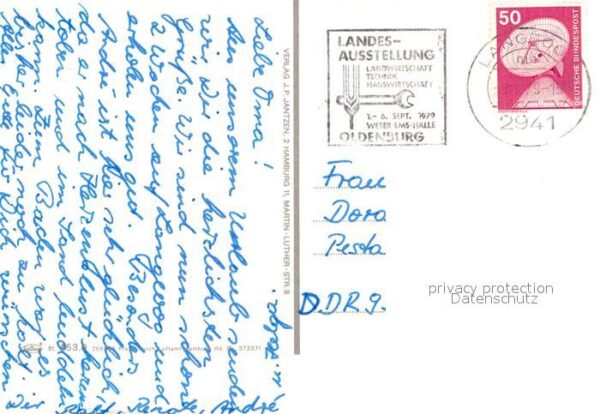 Liebe Oma!
Aus unserem Urlaub senden
wir die herzlichsten
Grüße. Wir sind nun schon
2 Wochen auf Langeoog und
erholen uns gut. Besonders
André ist hier sehr glücklich
da er nach Herzenslust
und im Sand buddeln
kann. Zum Baden war es
leider noch zu kalt.
Alles Gute für Dich wünschen
wir
André
VERLAG J.P. JANTZEN, 2 HAMBURG 11, MARTIN-LUTHER-STR. 8
LANDES-
AUSSTELLUNG
LANDWIRTSCHAFT
TECHNIK
HAUSWIRTSCHAFT
1.-6. SEPT. 1979
WESER-EMS-HALLE
OLDENBURG
50
DEUTSCHE BUNDESPOST
2941
Frau
Dora
Pesta
D.D.R. 9.
privacy protection
Datenschutz